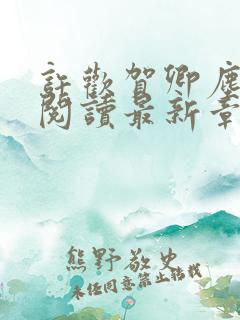 許歡賀卿塵
閱讀最新章
熊野敬史
未經同意禁止轉載